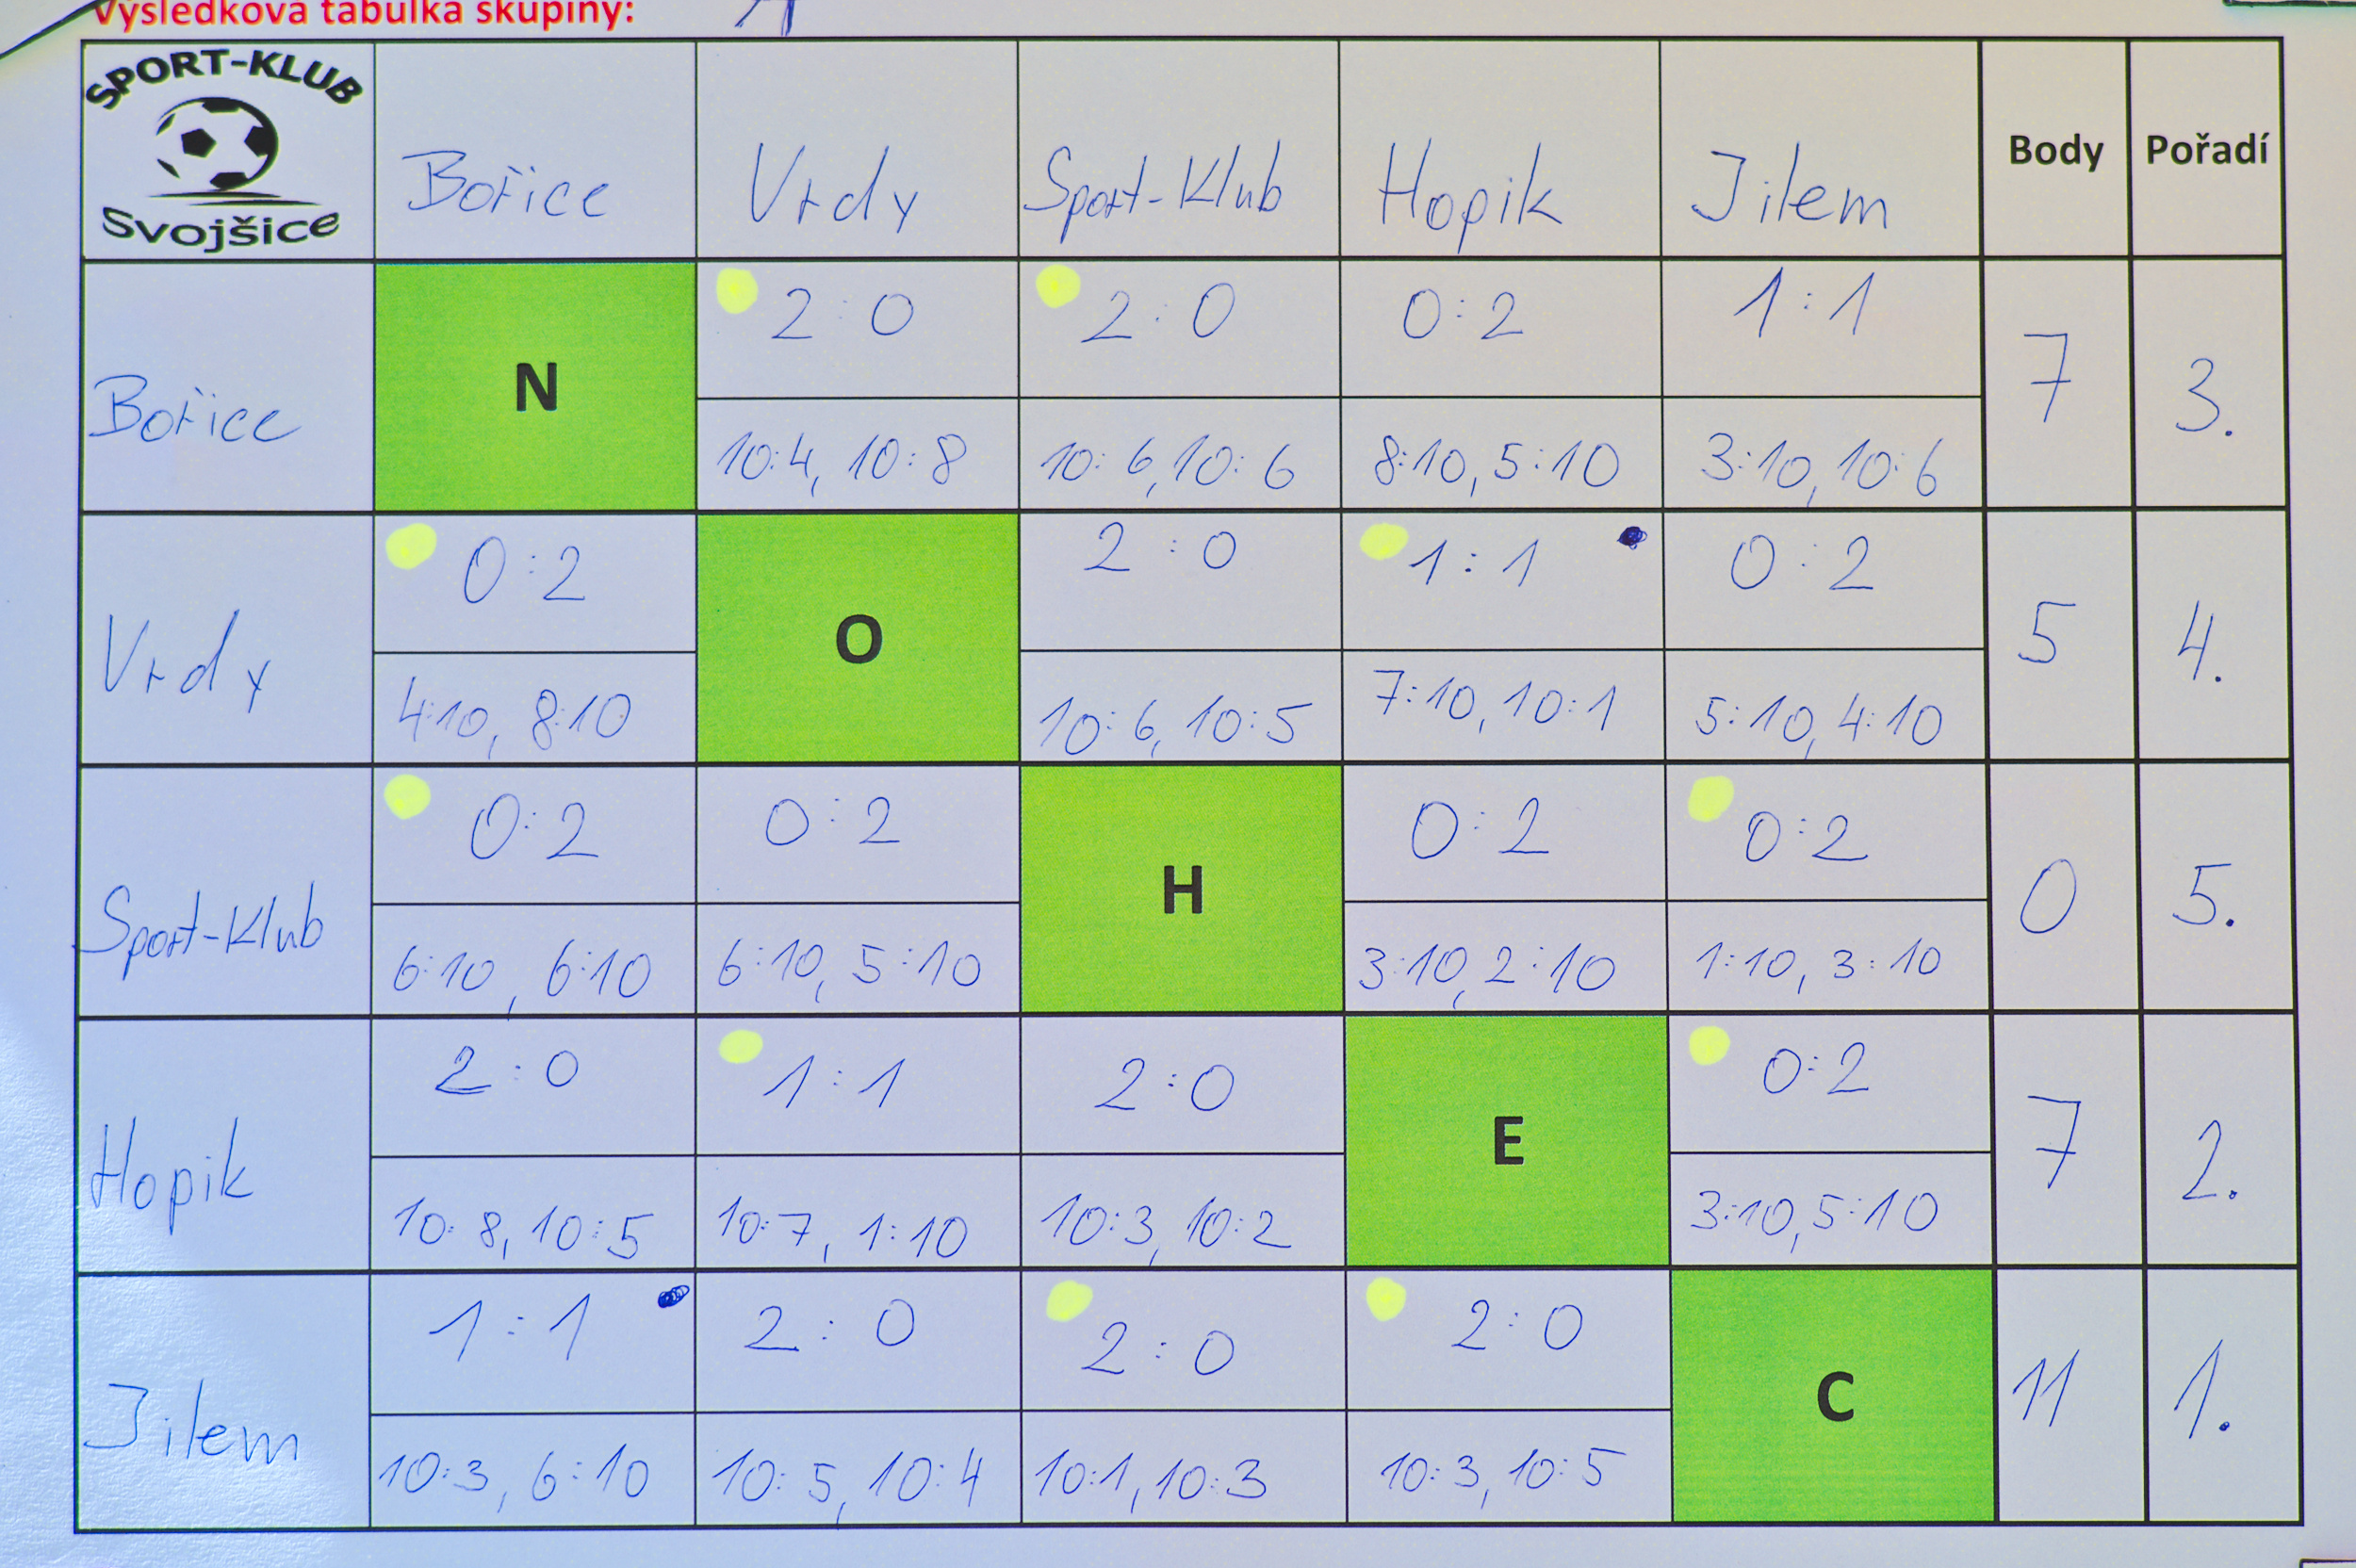 Výsledková tabulka skupiny: A
SPORT-KLUB
Svojšice
Bořice Vrdy Sport-Klub Hopik Jilem Body Pořadí
Bořice N 2:0 2:0 0:2 1:1 7 3.
10:4, 10:8 10:6, 10:6 8:10, 5:10 3:10, 10:6
Vrdy 0:2 O 2:0 1:1 0:2 5 4.
4:10, 8:10 10:6, 10:5 7:10, 10:1 5:10, 4:10
Sport-Klub 0:2 0:2 H 0:2 0:2 0 5.
6:10, 6:10 6:10, 5:10 3:10, 2:10 1:10, 3:10
Hopik 2:0 1:1 2:0 E 0:2 7 2.
10:8, 10:5 10:7, 1:10 10:3, 10:2 3:10, 5:10
Jilem 1:1 2:0 2:0 2:0 C 11 1.
10:3, 6:10 10:5, 10:4 10:1, 10:3 10:3, 10:5